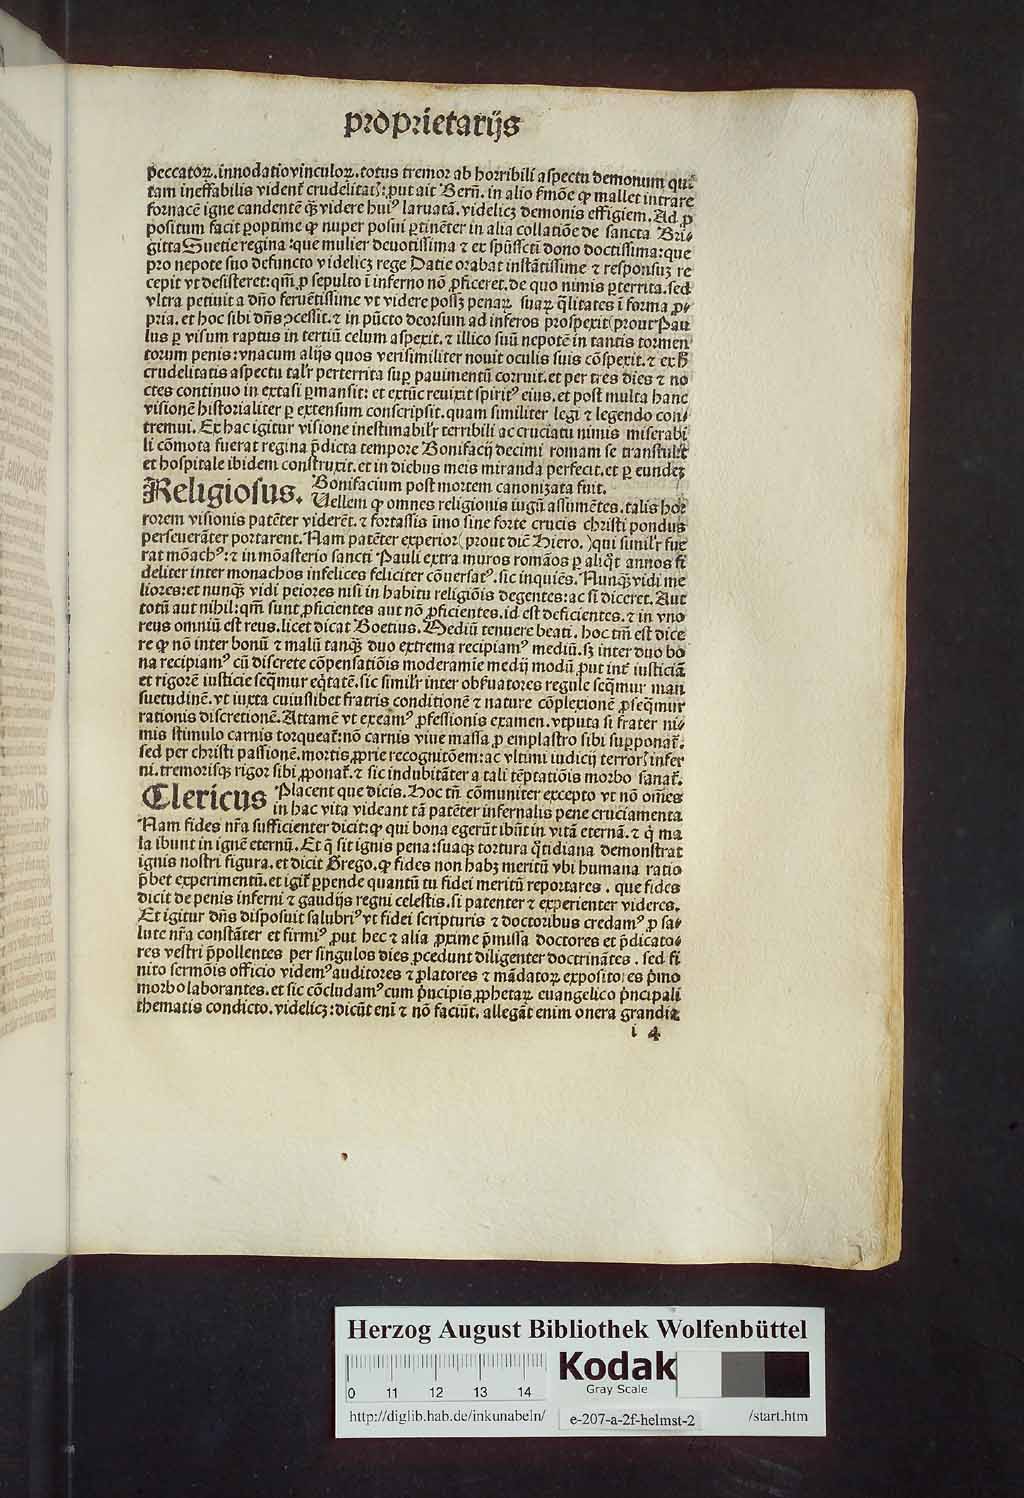 proprietarijs
peccatoꝝ. innodatio vinculoꝝ. totus tremor ab horribili aspectu demonum quꝝ
tam ineffabilis vident᷑ crudelitas: ꝓut ait Bern̄. in alio ẜmōe ꝙ mallet intrare
fornacē igne candentē q̄ꝫ videre huiꝰ laruatā. videlicꝫ demonis effigiem. Ad ꝓ
positum facit ꝑoptime ꝙ nuper posui ꝑtinēter in alia collatiōe de sancta Bri⸗
gitta Suetie regina: que mulier deuotissima ⁊ ex spūsscti dono doctissima: que
pro nepote suo defuncto videlicꝫ rege Datie orabat instātissime ⁊ responsuꝫ re
cepit vt desisteret: qm̄ ꝓ sepulto ī inferno nō ꝓficeret. de quo nimis ꝑterrita. sed
vltra petiuit a dn̄o feruētissime vt videre possꝫ penaꝝ suaꝝ q̄litates ī forma ꝓ⸗
pria. et hoc sibi dn̄s ꝯcessit. ⁊ in pūcto deorsum ad inferos prospexit (prout Pau
lus ꝑ visum raptus in tertiū celum aspexit. ⁊ illico suū nepotē in tantis tormen
torum penis: vnacum alijs quos verisimiliter nouit oculis suis cōspexit. ⁊ ex ꝉ
crudelitatis aspectu talr̄ perterrita suꝑ pauimentū corruit. et per tres dies ⁊ no
ctes continuo in extasi ꝑmansit: et extūc reuixit spiritꝰ eius. et post multa hanc
visionē historialiter ꝑ extensum conscripsit. quam similiter legi ⁊ legendo con⸗
tremui. Ex hac igitur visione inestimabilr̄ terribili ac cruciatu nimis miserabi
li cōmota fuerat regina p̄dicta tempore Bonifacij decimi romam se transtulit
et hospitale ibidem construxit. et in diebus meis miranda perfecit. et ꝑ eundeꝫ
Bonifacium post mortem canonizata fuit.
Religiosus. Vellem ꝙ omnes religionis iugū assumētes. talis hor
rorem visionis patēter viderēt. ⁊ fortassis īmo sine forte crucis christi pondus
perseuerāter portarent. Nam patēter experior (prout diē Hiero.) qui similr̄ fue
rat mōachꝰ: ⁊ in mōasterio sancti Pauli extra muros romāos ꝑ aliq̄t annos fi
deliter inter monachos infelices feliciter cōuersatꝰ. sic inquiēs. Nunq̄ꝫ vidi me
liores: et nunq̄ꝫ vidi peiores nisi in habitu religiōis degentes: ac si diceret. Aut
totū aut nihil: qm̄ sunt ꝓficientes aut nō ꝓficientes. id est deficientes. ⁊ in vno
reus omniū est reus. licet dicat Boetius. Mediū tenuere beati. hoc tm̄ est dice
re ꝙ nō inter bonū ⁊ malū tanq̄ꝫ duo extrema recipiamꝰ mediū. sꝫ inter duo bo
na recipiamꝰ cū discrete cōpensatiōis moderamīe medij modū ꝓut int᷑ iusticiā
et rigorē iusticie seq̄mur eq̄tatē. sic similr̄ inter obẜuatores regule seq̄mur man
suetudinē. vt iuxta cuiuslibet fratris conditionē ⁊ nature cōplexionē ꝓseq̄mur
rationis discretionē. Attamē vt exeamꝰ ꝓfessionis examen. vtputa si frater ni⸗
mis stimulo carnis torqueat᷑: nō carnis viue massa ꝓ emplastro sibi supponat᷑.
sed per christi passionē. mortis ꝓprie recognitōem: ac vltimi iudicij terror᷑ infer
ni. tremorisqꝫ rigor sibi ꝓponat᷑. ⁊ sic indubitāter a tali tēptatiōis morbo sanat᷑.
Clericus Placent que dicis. Hoc tn̄ cōmuniter excepto vt nō om̄es
in hac vita videant tā patēter infernalis pene cruciamenta
Nam fides nr̄a sufficienter dicit: ꝙ qui bona egerūt ibūt in vitā eternā. ⁊ q̄ ma
la ibunt in ignē eternū. Et q̄ sit ignis pena: suaqꝫ tortura q̄tidiana demonstrat
ignis nostri figura. et dicit Grego. ꝙ fides non habꝫ meritū vbi humana ratio
p̄bet experimentū. et igit᷑ ꝑpende quantū tu fidei meritū reportares. que fides
dicit de penis inferni ⁊ gaudijs regni celestis. si patenter ⁊ experienter videres.
Et igitur dn̄s disposuit salubriꝰ vt fidei scripturis ⁊ doctoribus credamꝰ ꝓ sa⸗
lute nr̄a constāter et firmiꝰ ꝓut hec ⁊ alia ꝓxime p̄missa doctores et p̄dicato⸗
res vestri p̄pollentes per singulos dies ꝓcedunt diligenter doctrināntes. sed fi
nito sermōis officio videmꝰ auditores ⁊ ꝓlatores ⁊ mādatoꝝ expositores p̄mo
morbo laborantes. et sic cōcludamꝰ cum p̄ncipis ꝓphetaꝝ euangelico p̄ncipali
thematis condicto. videlicꝫ: dicūt enī ⁊ nō faciūt. allegāt enim onera grandia
i 4
Herzog August Bibliothek Wolfenbüttel
0 11 12 13 14
Kodak
Gray Scale
http://diglib.hab.de/inkunabeln/ e-207-a-2f-helmst-2 /start.htm